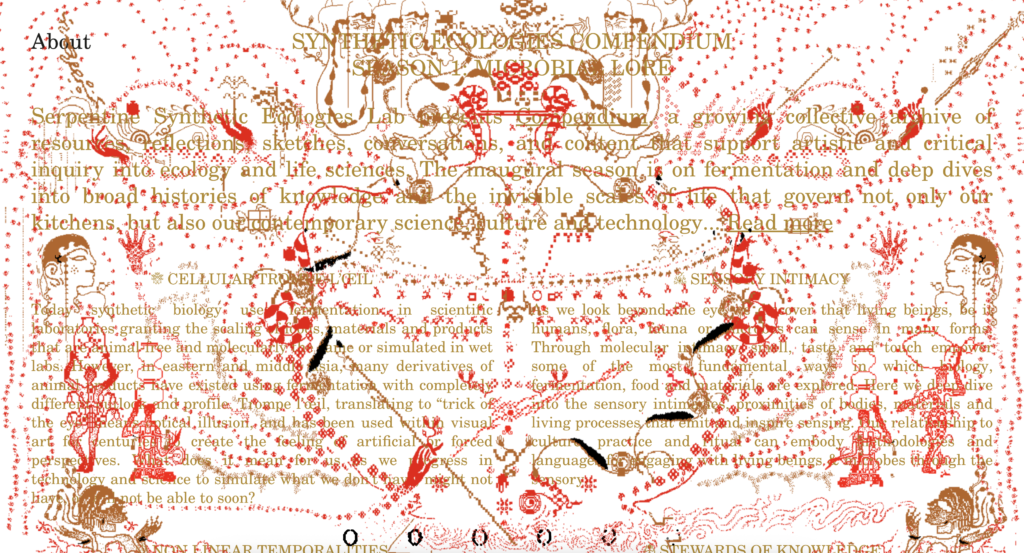 About
SYNTHETIC ECOLOGIES COMPENDIUM
SEASON 1: MICROBIAL LORE
Serpentine Synthetic Ecologies Lab presents Compendium, a growing collective archive of
resources, reflections, sketches, conversations, and content that support artistic and critical
inquiry into ecology and life sciences. The inaugural season is on fermentation and deep dives
into broad histories of knowledge and the invisible scales of life that govern not only our
kitchens, but also our contemporary science, culture and technology... Read more
❊ CELLULAR TROMPE L'ŒIL
Today synthetic biology uses fermentation in scientific
laboratories granting the scaling materials and products
that are animal-free and molecularly the same or simulated in wet
labs. However, in eastern and middle Asia, many derivatives of
animal products have existed using fermentation with completely
different and profile. Trompe l'œil, translating to “trick of
the eye” means optical illusion, and has been used within visual
art for centuries to create the feeling of artificial or forced
perspectives. What does it mean for us as we progress in
technology and science to simulate what we don't have, might not
have, or not be able to soon?
❊ SENSORY INTIMACY
As we look beyond the eye, we discover that living beings, be it
humans, flora, fauna or can sense in many forms.
Through molecular intimacy, smell, taste and touch empower
some of the most fundamental ways in which biology,
fermentation, food and materials are explored. Here we deep dive
into the sensory intimacies, proximities of bodies, materials and
living processes that emit and inspire sensing. Our relationship to
culture, practice and ritual can embody methodologies and
languages for engaging with living beings, & microbes through the
sensory.
NON LINEAR TEMPORALITIES
❊ STEWARDS OF KNOWLEDGE